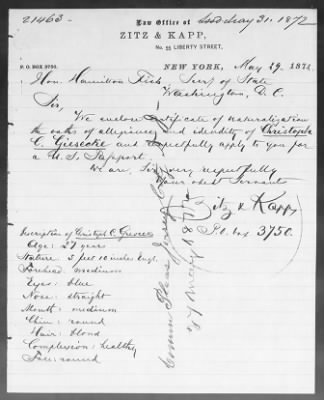 21463.
Law Office of
issd May 31. 1872
ZITZ & KAPP,
No. 55 LIBERTY STREET,
P. O. BOX 3750.
NEW YORK, May 29. 1872
Hon. Hamilton Fish, Secy of State
Washington, D. C.
Sir,
We enclose certificate of naturalization
the oaths of allegiance and identity of Christoph
C. Giesecke and respectfully apply to you for
a U. S. Passport.
We are, Sir, very respectfully
Your obedt Servants
Zitz & Kapp
P. O. box 3750.
Description of Christoph C. Giesecke
Age: 27 years
Stature: 5 feet 10 inches Engl.
Forehead: medium
Eyes: blue
Nose: straight
Mouth: medium
Chin: round
Hair: blond
Complexion: healthy
Face: round